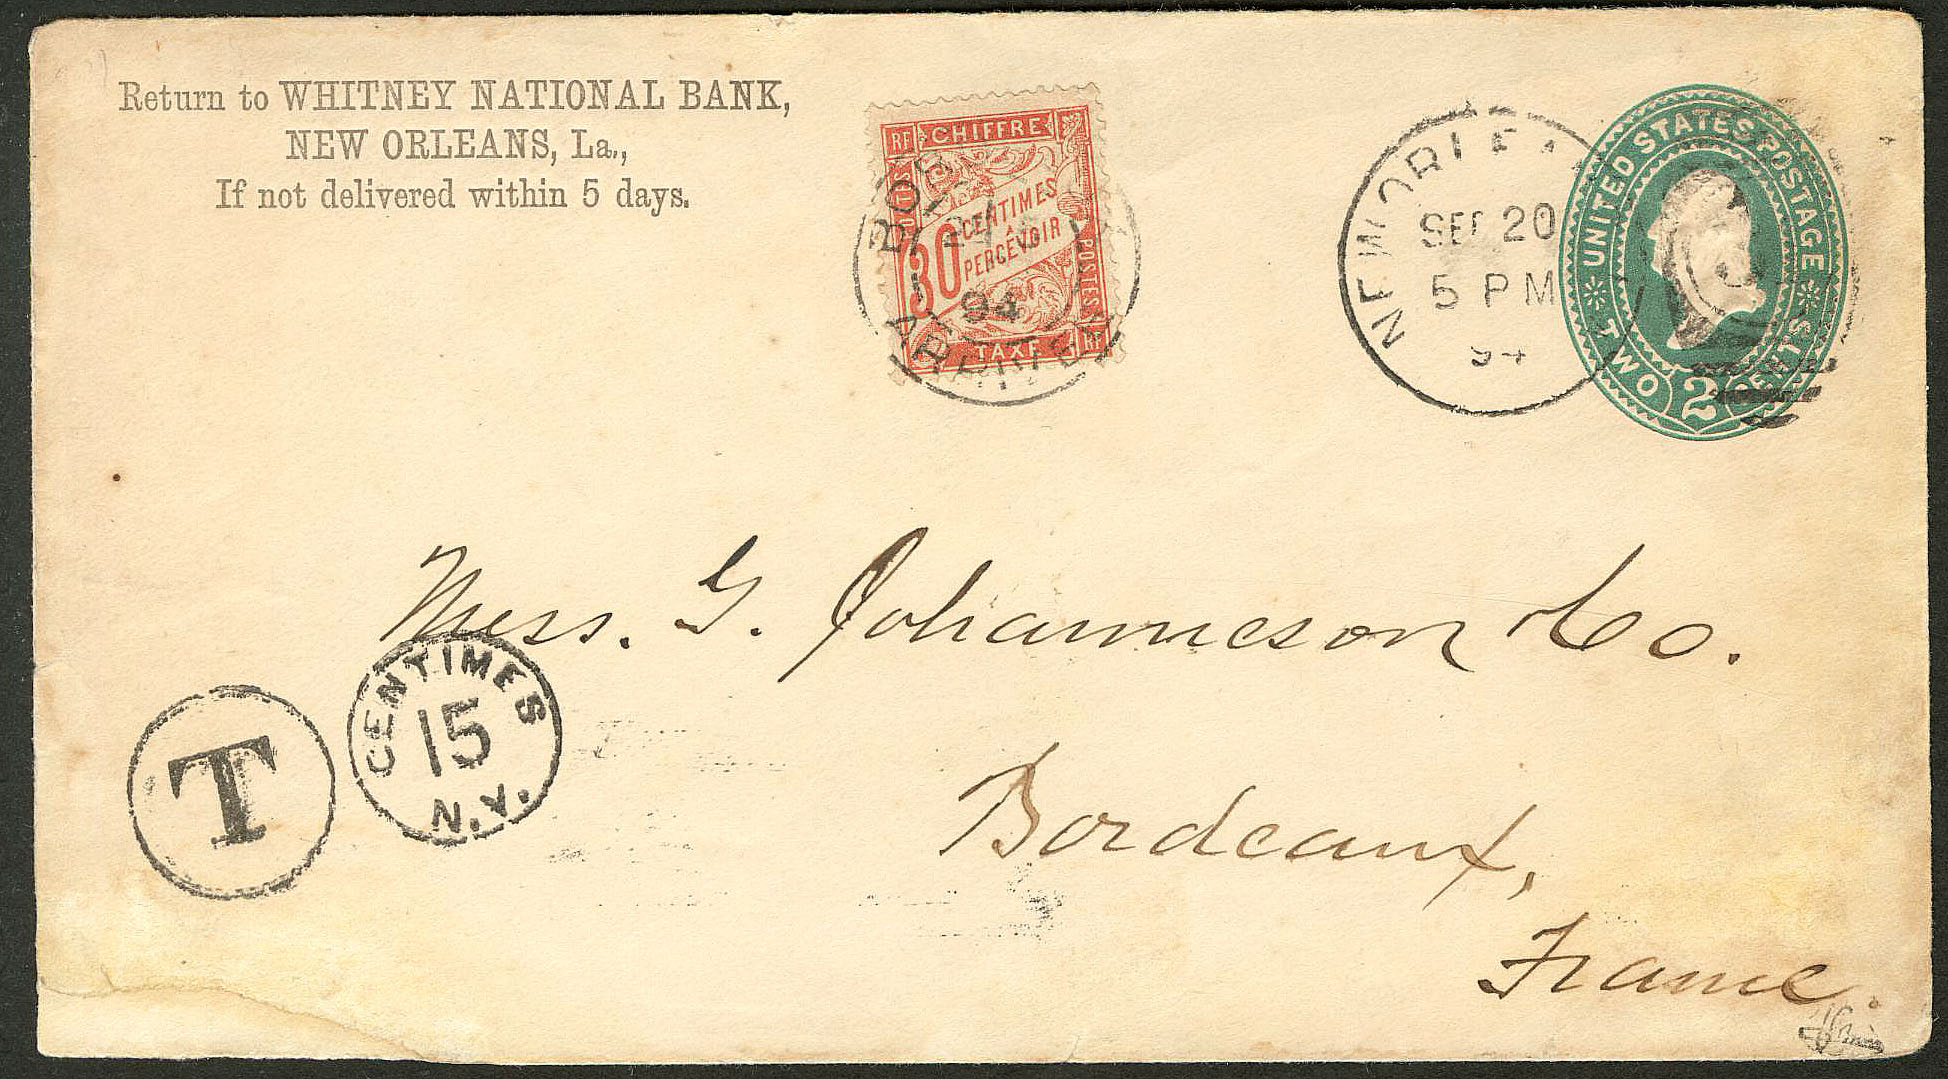 Return to WHITNEY NATIONAL BANK,
NEW ORLEANS, La.,
If not delivered within 5 days.
RF CHIFFRE
POSTES
30 CENTIMES
À PERCEVOIR
POSTES
TAXE RF
94
NEW ORLEA
SEP 20
5 PM
94
UNITED STATES POSTAGE
TWO 2 CENTS
Mess. G. Johannieson & Co.
Bordeaux,
France.
T
CENTIMES
15
N.Y.